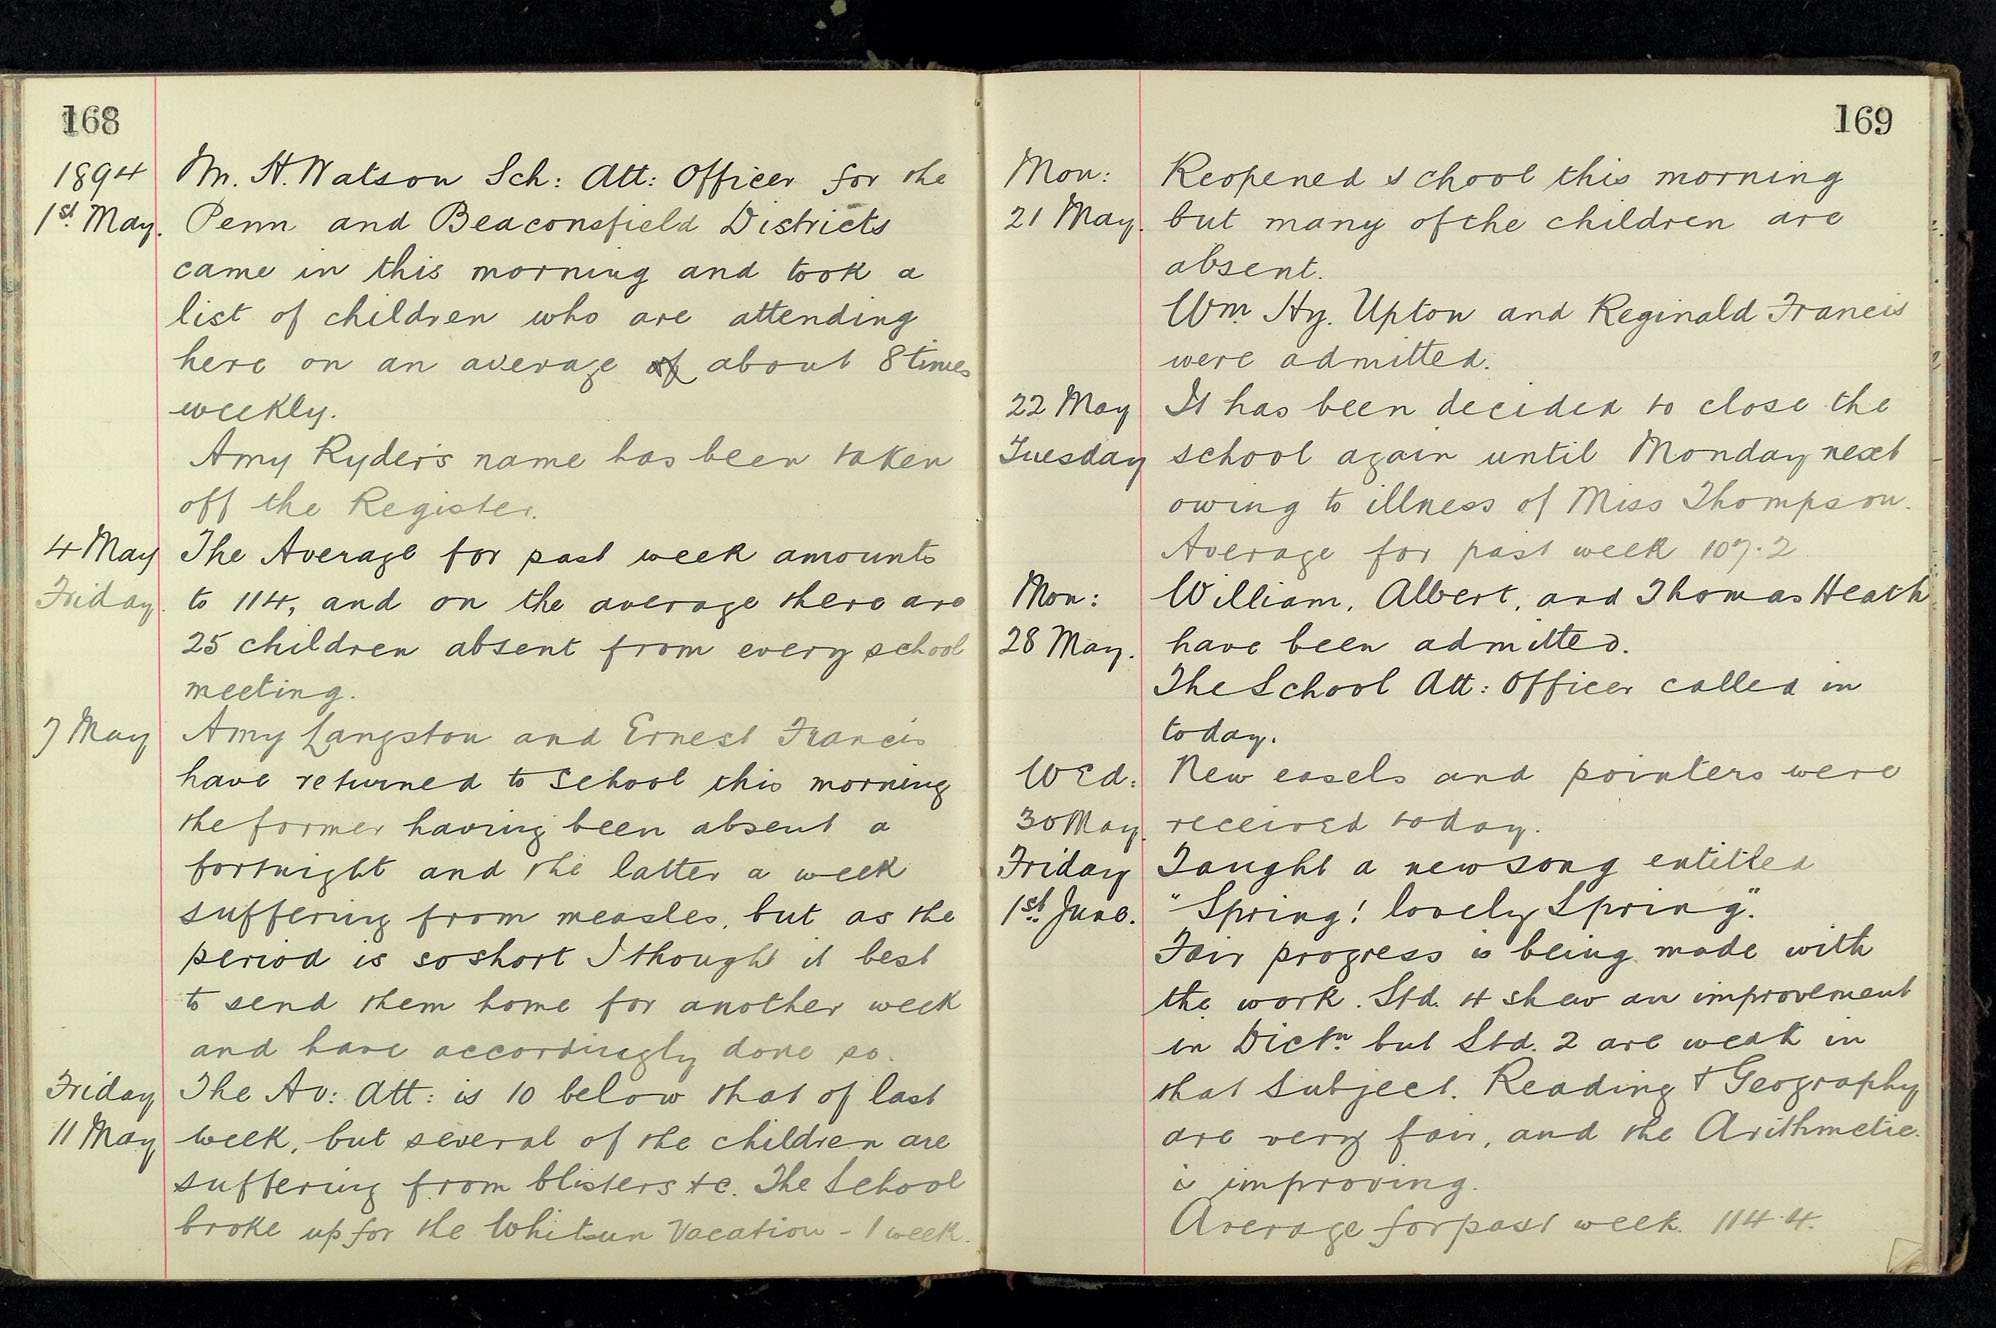 168
1894 Mr. H. Watson Sch: Att: Officer for the
1st May. Penn and Beaconsfield Districts
came in this morning and took a
list of children who are attending
here on an average of about 8 times
weekly.
Amy Ryder's name has been taken
off the Register.
4 May The Average for past week amounts
Friday. to 114, and on the average there are
25 children absent from every school
meeting.
7 May Amy Langston and Ernest Francis
have returned to School this morning
the former having been absent a
fortnight and the latter a week
suffering from measles, but as the
period is so short I thought it best
to send them home for another week
and have accordingly done so.
Friday The Av: Att: is 10 below that of last
11 May week, but several of the children are
suffering from blisters &c. The School
broke up for the Whitsun Vacation - 1 week.
169
Mon: Reopened school this morning
21 May. but many of the children are
absent.
Wm. Hy. Upton and Reginald Francis
were admitted.
22 May It has been decided to close the
Tuesday school again until Monday next
owing to illness of Miss Thompson.
Average for past week 107.2
Mon: William, Albert, and Thomas Heath
28 May. have been admitted.
The School Att: Officer called in
today.
Wed: New easels and pointers were
30 May. received today.
Friday Taught a new song entitled
1st June. "Spring! lovely Spring".
Fair progress is being made with
the work. Std. 4 shew an improvement
in Dictn but Std. 2 are weak in
that Subject. Reading & Geography
are very fair, and the Arithmetic
is improving.
Average for past week 114.4.